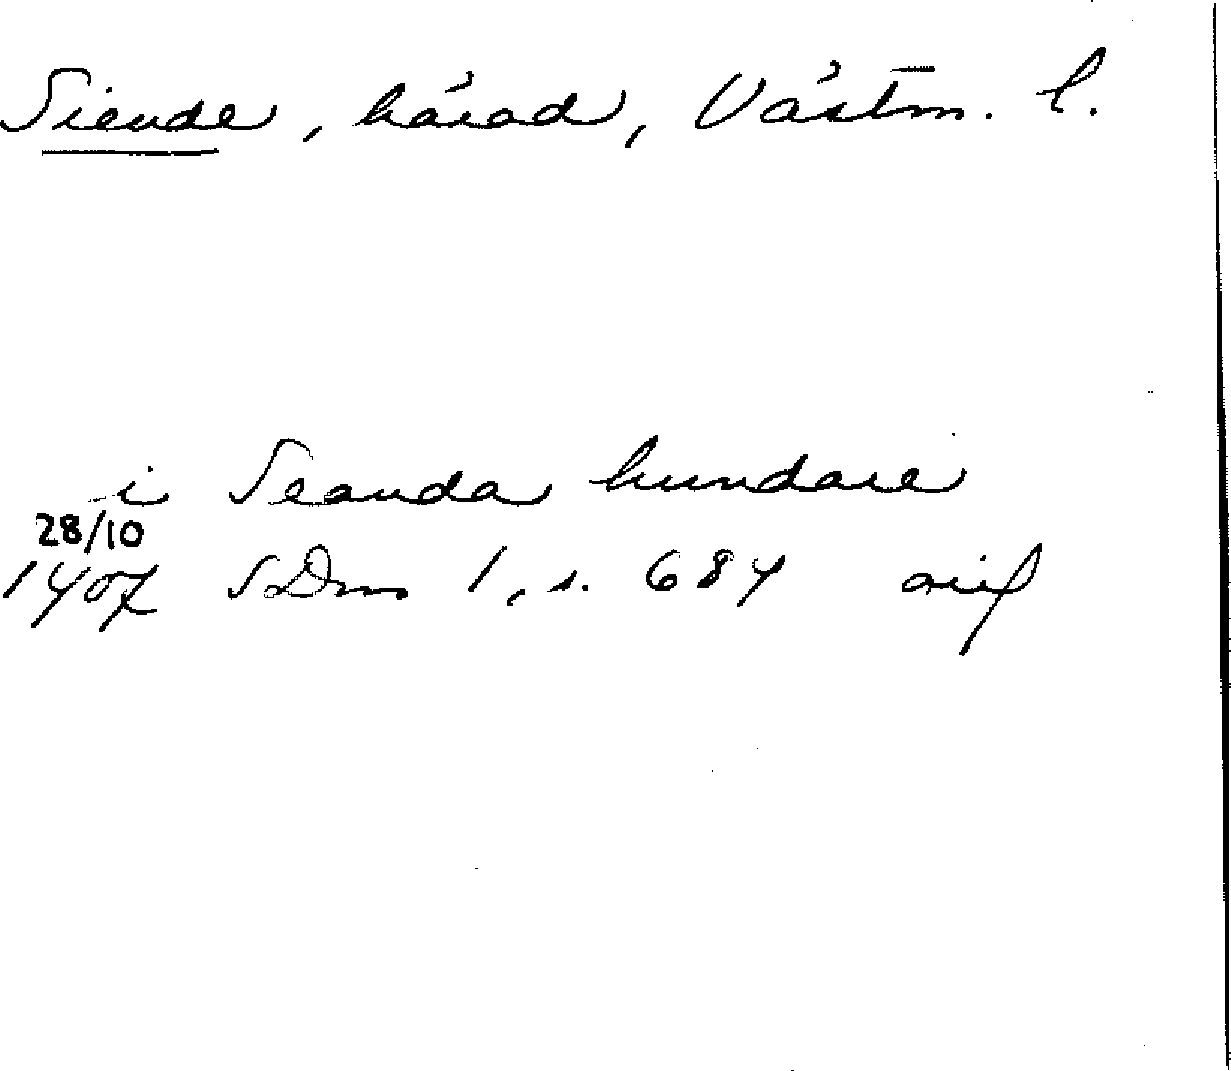 Siende, härad, Västm. l.
i Seanda hundare
28/10
1407 SDns 1, s. 684 orig